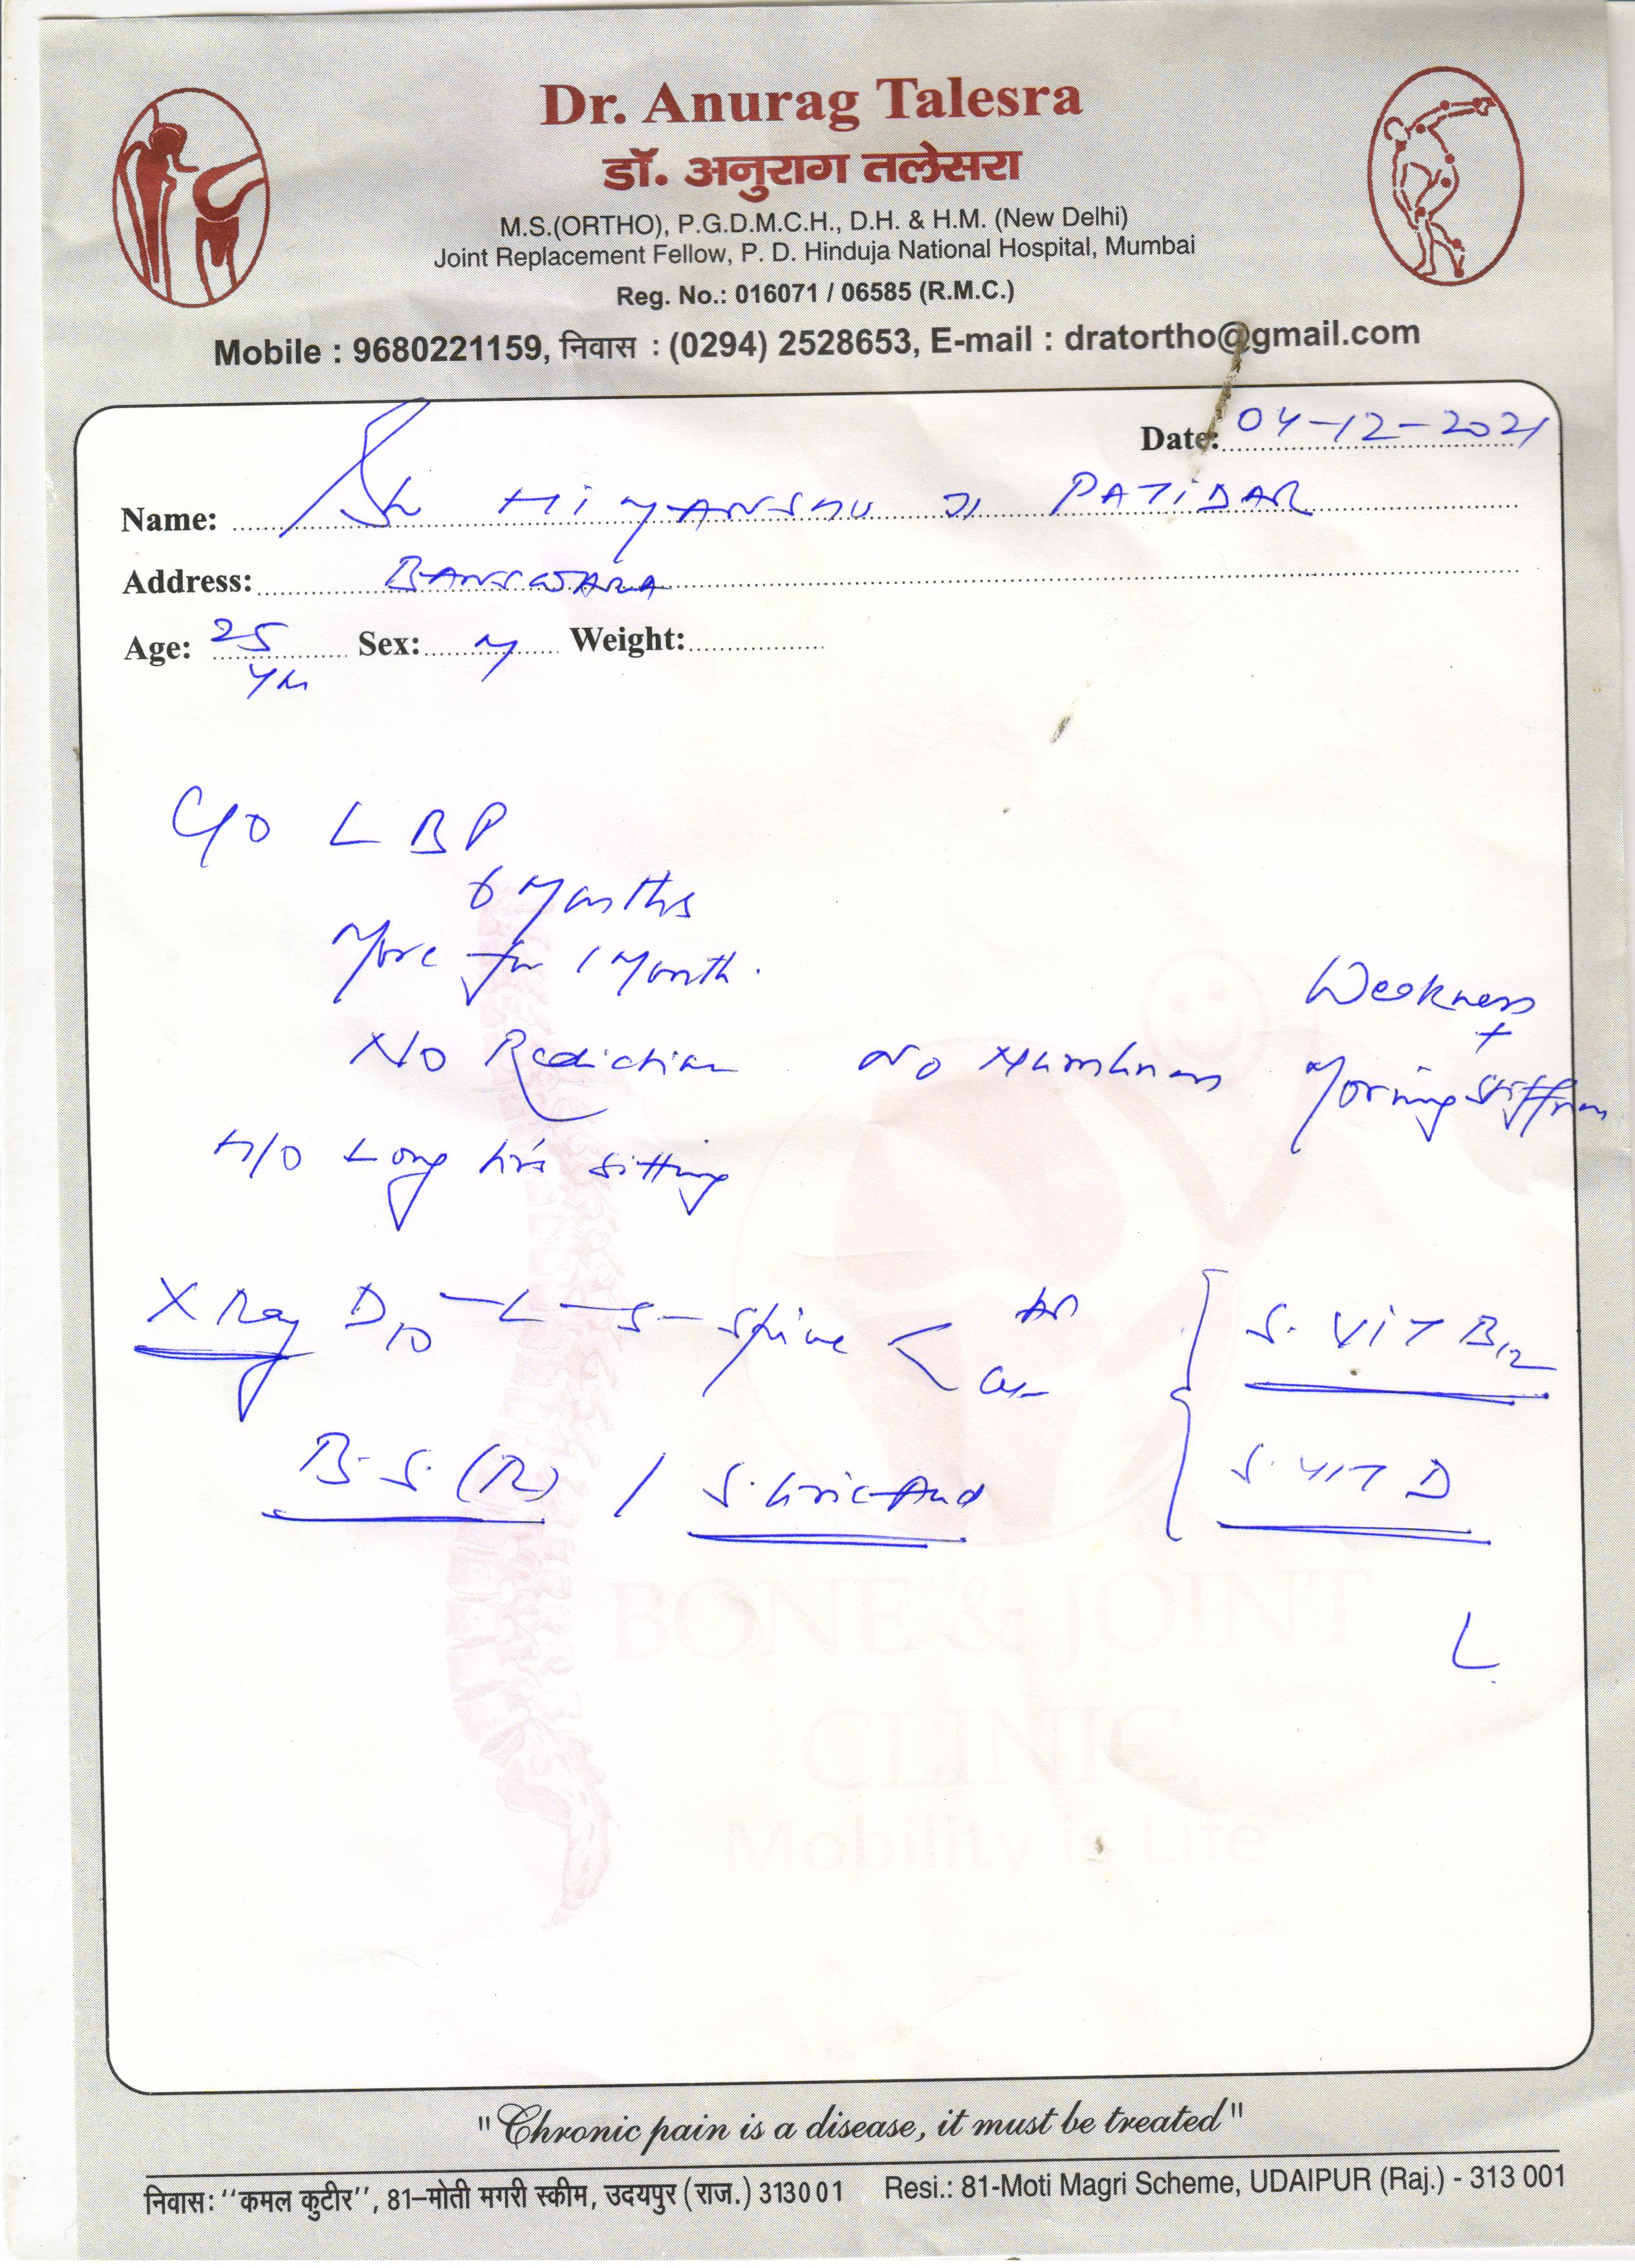 Dr. Anurag Talesra
डॉ. अनुराग तलेसरा
M.S.(ORTHO), P.G.D.M.C.H., D.H. & H.M. (New Delhi)
Joint Replacement Fellow, P. D. Hinduja National Hospital, Mumbai
Reg. No.: 016071 / 06585 (R.M.C.)
Mobile : 9680221159, निवास : (0294) 2528653, E-mail : dratortho@gmail.com
Date: 04-12-2021
Name: Sh HiMANSHU JI PATIDAR
Address: BANSWARA
Age: 25 Sex: M Weight:
Yrs
C/O LBP
6 Months
More for 1 Month.
Weakness
+
No Radiation No Numbness Morning Stiffness
H/O Long hrs sitting
X Ray D10 - L - S - Spine < AP
Lat
S. ViT B12
B.S. (R) / S. Uric Acid
S. VIT D
BONE & JOINT
CLINIC
Mobility is Life
"Chronic pain is a disease, it must be treated"
निवास: ''कमल कुटीर'', 81-मोती मगरी स्कीम, उदयपुर (राज.) 313001 Resi.: 81-Moti Magri Scheme, UDAIPUR (Raj.) - 313 001